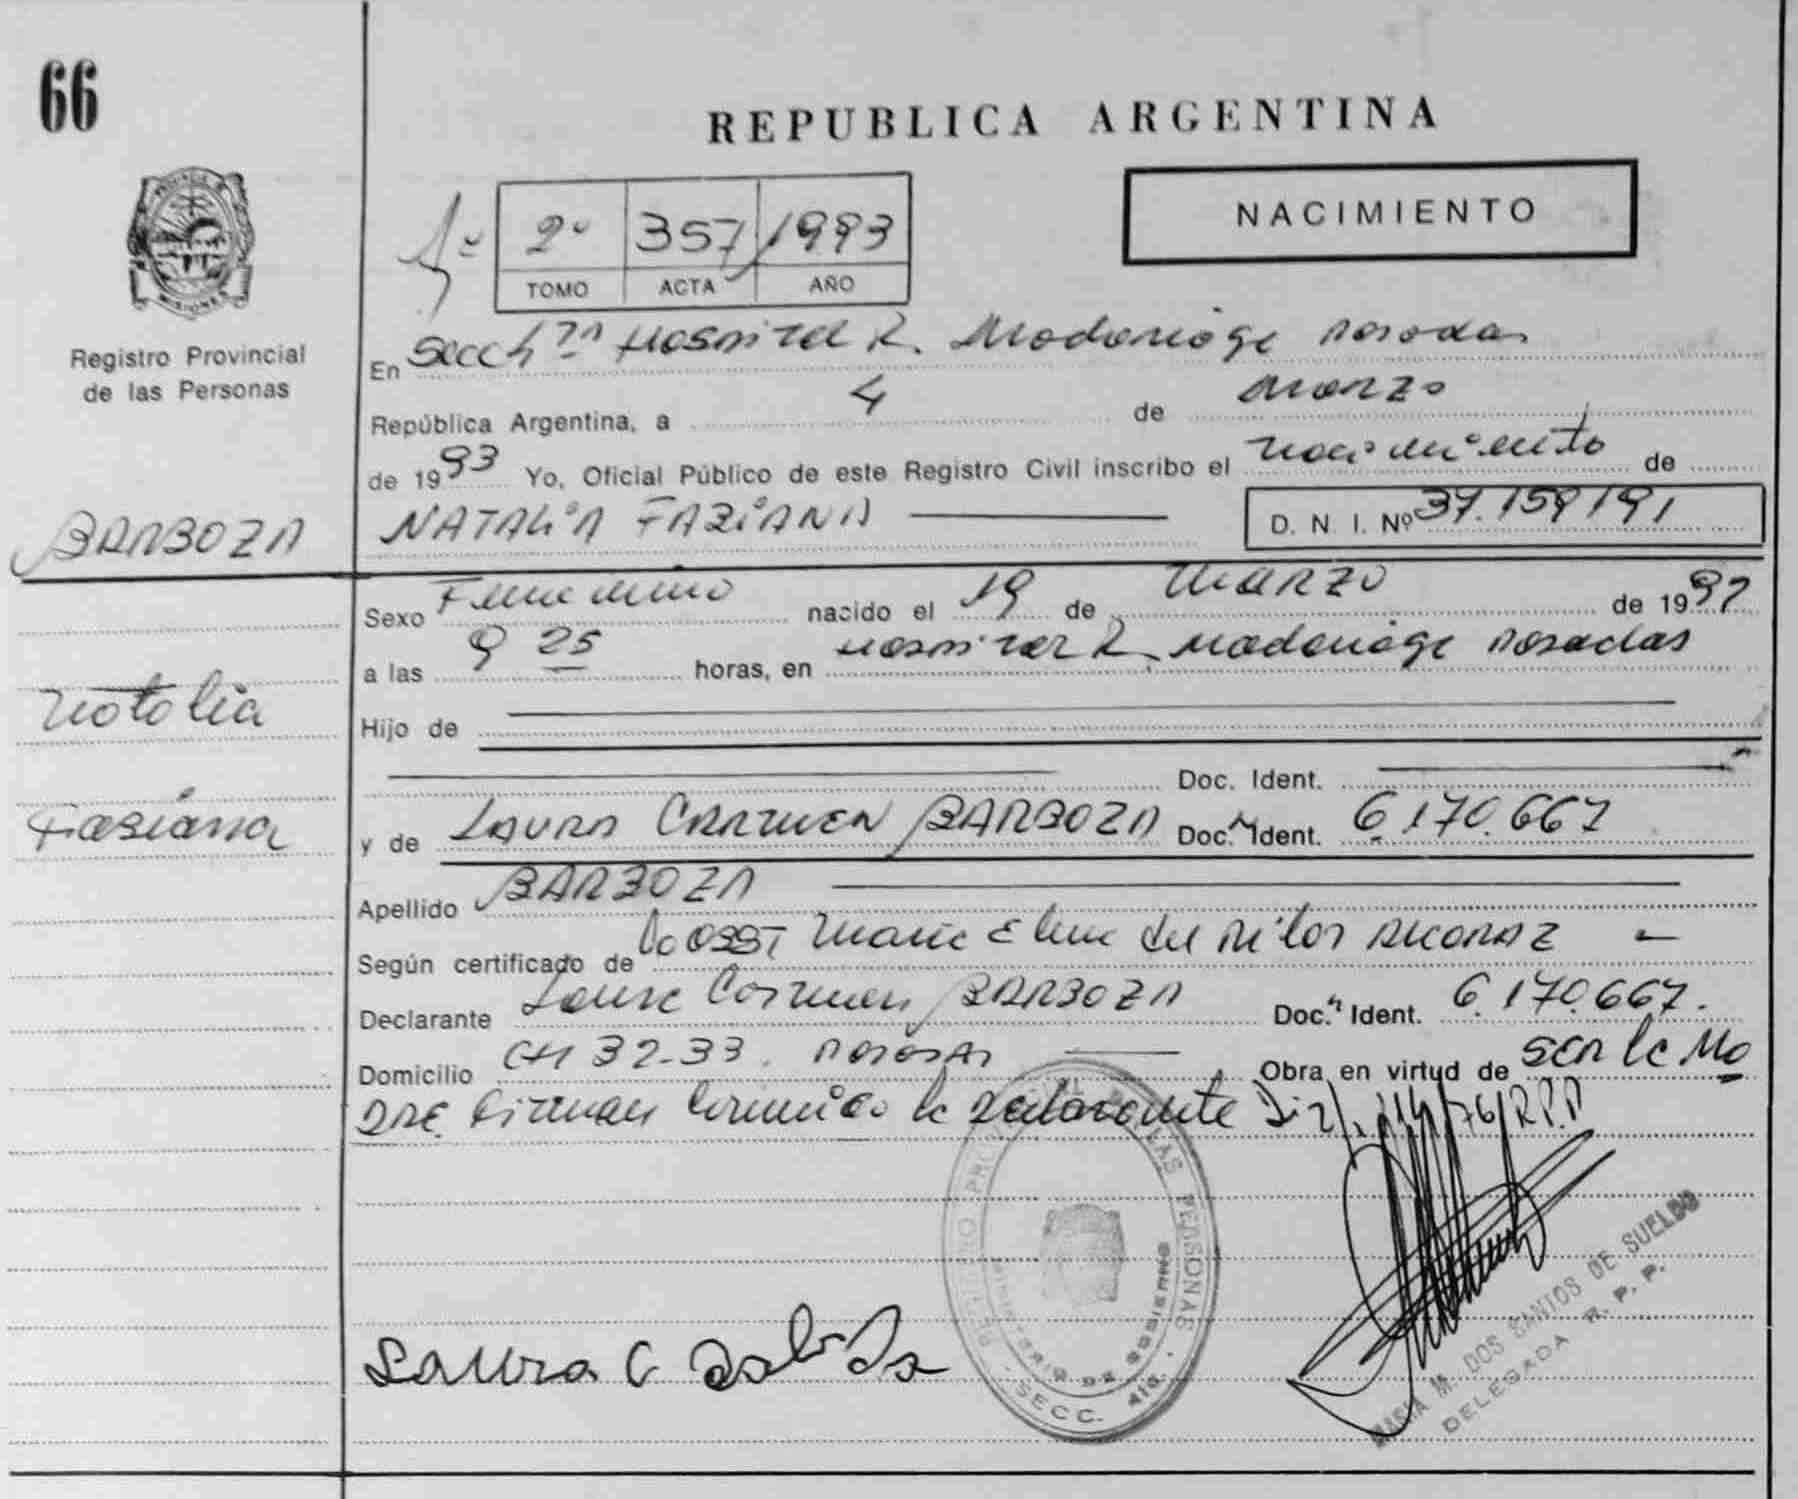 66
REPUBLICA ARGENTINA
NACIMIENTO
1º 2º 357 1993
TOMO ACTA AÑO
PROVINCIA DE MISIONES
Registro Provincial
de las Personas
En Secc 4ª Hospital R. Madariaga Posadas
República Argentina, a 4 de Marzo
de 1993 Yo, Oficial Público de este Registro Civil inscribo el nacimiento de
BARBOZA NATALIA FABIANA D. N. I. Nº 37.159191
Sexo Femenino nacido el 19 de Marzo de 1992
a las 9 25 horas, en Hospital R. Madariaga Posadas
Natalia
Hijo de
Doc. Ident.
Fabiana
y de LAURA CARMEN BARBOZA Doc. Ident. 6.170.667
Apellido BARBOZA
Según certificado de Maria Elena del Pilar
Declarante Laura Carmen BARBOZA Doc. Ident. 6.170.667.
Domicilio CH 32-33. Posadas Obra en virtud de SER la Ma
DRE. Firman la Declarante
REGISTRO PROVINCIAL DE LAS PERSONAS
MINISTERIO DE GOBIERNO
SECC. 4ta.
Laura C
M. DOS SANTOS DE SUELDO
DELEGADA R. P. P.